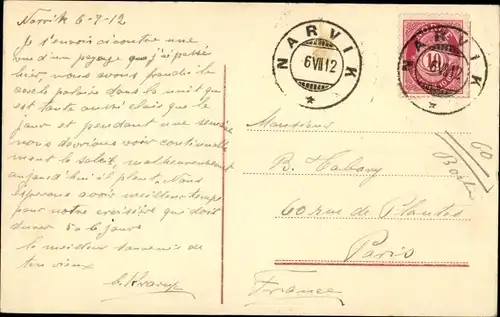 Narvik 6-7-12
Je t'envoie ci contre une
vue d'un paysage que j'ai passé
hier, nous avons franchi le
cercle polaire dans la nuit qui
est toute aussi claire que le
jour et pendant une semaine
nous devrions voir continuelle
ment le soleil, malheureusement
aujourd'hui il pleut. Nous
espérons avoir meilleur temps
pour notre croisière qui doit
durer 5 a 6 jours
le meilleur souvenir de
ton vieux
NARVIK
6 VII 12
NARVIK
VII 12
10
Monsieur
B. Tabary
60 rue de Plantes
Paris
France
60